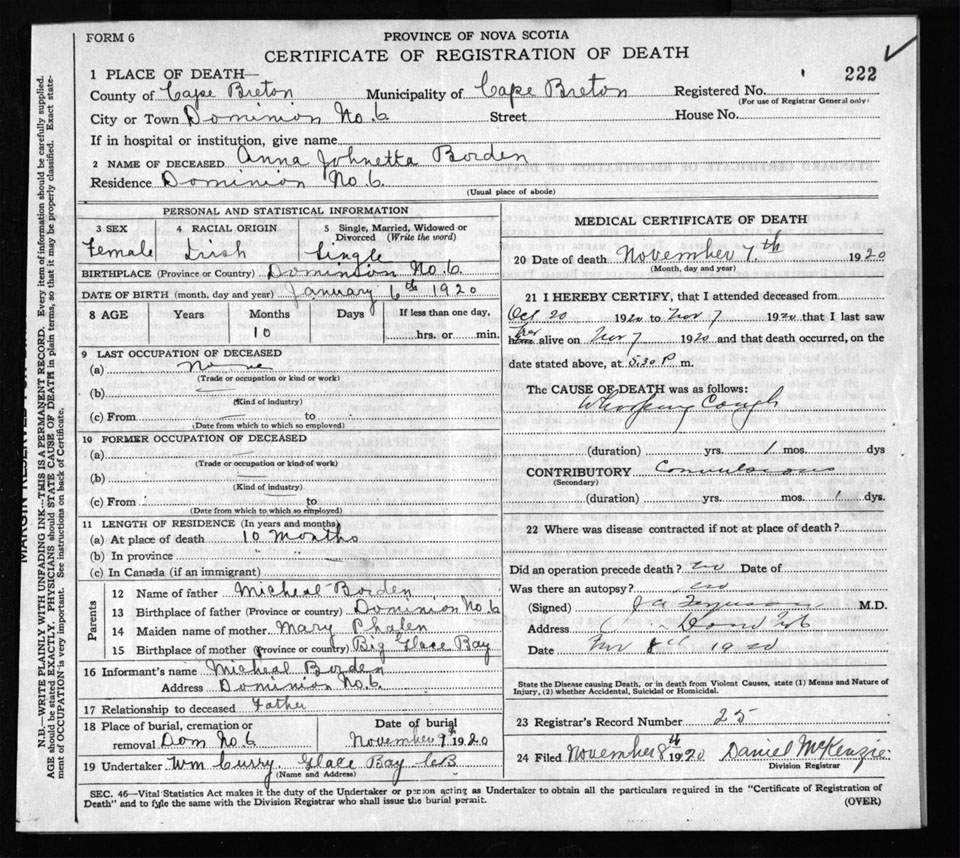 FORM 6
PROVINCE OF NOVA SCOTIA
CERTIFICATE OF REGISTRATION OF DEATH
222
1 PLACE OF DEATH—
County of Cape Breton Municipality of Cape Breton Registered No.
(For use of Registrar General only)
City or Town Dominion No. 6 Street House No.
If in hospital or institution, give name
2 NAME OF DECEASED Anna Johnetta Borden
Residence Dominion No. 6.
(Usual place of abode)
PERSONAL AND STATISTICAL INFORMATION
3 SEX 4 RACIAL ORIGIN 5 Single, Married, Widowed or Divorced (Write the word)
Female Irish Single
BIRTHPLACE (Province or Country) Dominion No. 6.
DATE OF BIRTH (month, day and year) January 6th 1920
8 AGE Years Months Days If less than one day,
10 hrs. or min.
9 LAST OCCUPATION OF DECEASED
(a) None
(Trade or occupation or kind or work)
(b)
(Kind of industry)
(c) From to
(Date from which to which so employed)
10 FORMER OCCUPATION OF DECEASED
(a)
(Trade or occupation or kind of work)
(b)
(Kind of industry)
(c) From to
(Date from which to which so employed)
11 LENGTH OF RESIDENCE (In years and months)
(a) At place of death 10 Months
(b) In province " "
(c) In Canada (if an immigrant)
Parents
12 Name of father Micheal Borden
13 Birthplace of father (Province or country) Dominion No 6
14 Maiden name of mother Mary Phalen
15 Birthplace of mother (Province or country) Big Glace Bay
16 Informant's name Micheal Borden
Address Dominion No 6.
17 Relationship to deceased Father
18 Place of burial, cremation or removal Dom No 6
Date of burial November 9th 1920
19 Undertaker Wm Curry. Glace Bay CB
(Name and Address)
MEDICAL CERTIFICATE OF DEATH
20 Date of death November 7.th 1920
(Month, day and year)
21 I HEREBY CERTIFY, that I attended deceased from
Oct 20 1920 to Nov 7 1920 that I last saw
her alive on Nov 7 1920 and that death occurred, on the
date stated above, at 5.30 P m.
The CAUSE OF DEATH was as follows:
Whooping Cough
(duration) yrs. 1 mos. dys
CONTRIBUTORY Convulsions
(Secondary)
(duration) yrs. mos. 1 dys.
22 Where was disease contracted if not at place of death?
Did an operation precede death? no Date of
Was there an autopsy? no
(Signed) J A Ferguson M.D.
Address
Date Nov 8th 1920
State the Disease causing Death, or in death from Violent Causes, state (1) Means and Nature of
Injury, (2) whether Accidental, Suicidal or Homicidal.
23 Registrar's Record Number 25
24 Filed November 8th 1920 Daniel McKenzie
Division Registrar
SEC. 46—Vital Statistics Act makes it the duty of the Undertaker or person acting as Undertaker to obtain all the particulars required in the "Certificate of Registration of
Death" and to fyle the same with the Division Registrar who shall issue the burial permit.
(OVER)
N.B.—WRITE PLAINLY WITH UNFADING INK—THIS IS A PERMANENT RECORD. Every item of information should be carefully supplied.
AGE should be stated EXACTLY. PHYSICIANS should STATE CAUSE OF DEATH in plain terms, so that it may be properly classified. Exact state-
ment of OCCUPATION is very important. See instructions on back of Certificate.